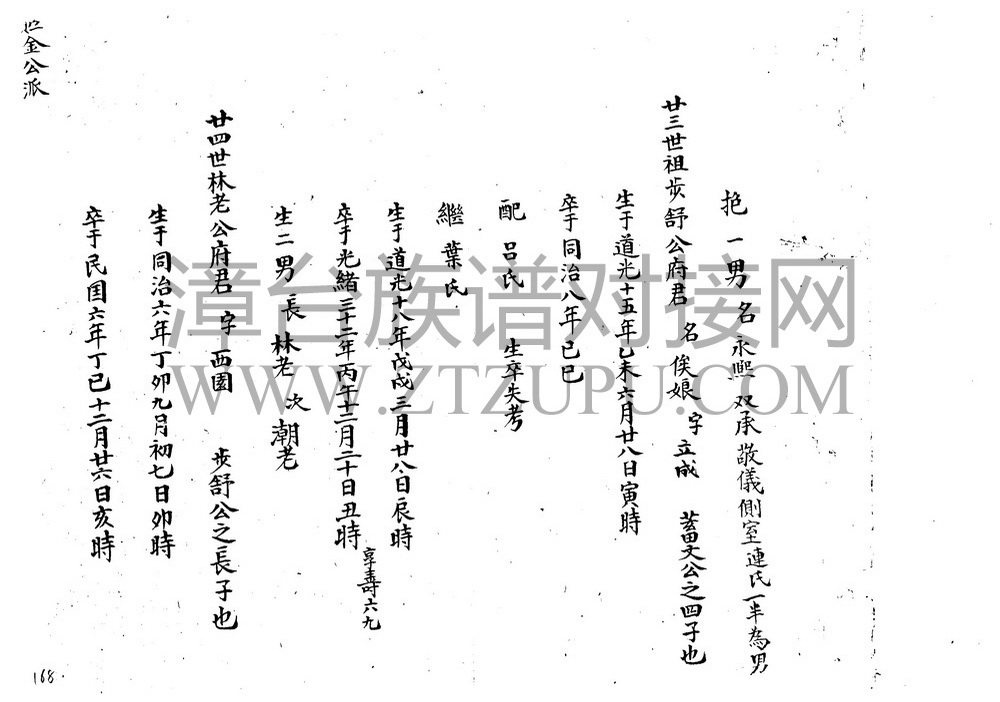 抱一男名永熙双承敬儀側室連氏一半為男
廿三世祖步舒公府君 名俟娘 字立成 蓄文公之四子也
生于道光十五年乙未六月廿八日寅時
卒于同治八年己巳
配呂氏 生卒失考
繼葉氏
生于道光十八年戊戌三月廿八日辰時
卒于光緒三十二年丙午十二月二十日丑時 享壽六九
生二男長林老次潮老
廿四世林老公府君 字西園 步舒公之長子也
生于同治六年丁卯九月初七日卯時
卒于民国六年丁巳十二月廿六日亥時
金公派
168
漳台族谱对接网
WWW.ZTZUPU.COM